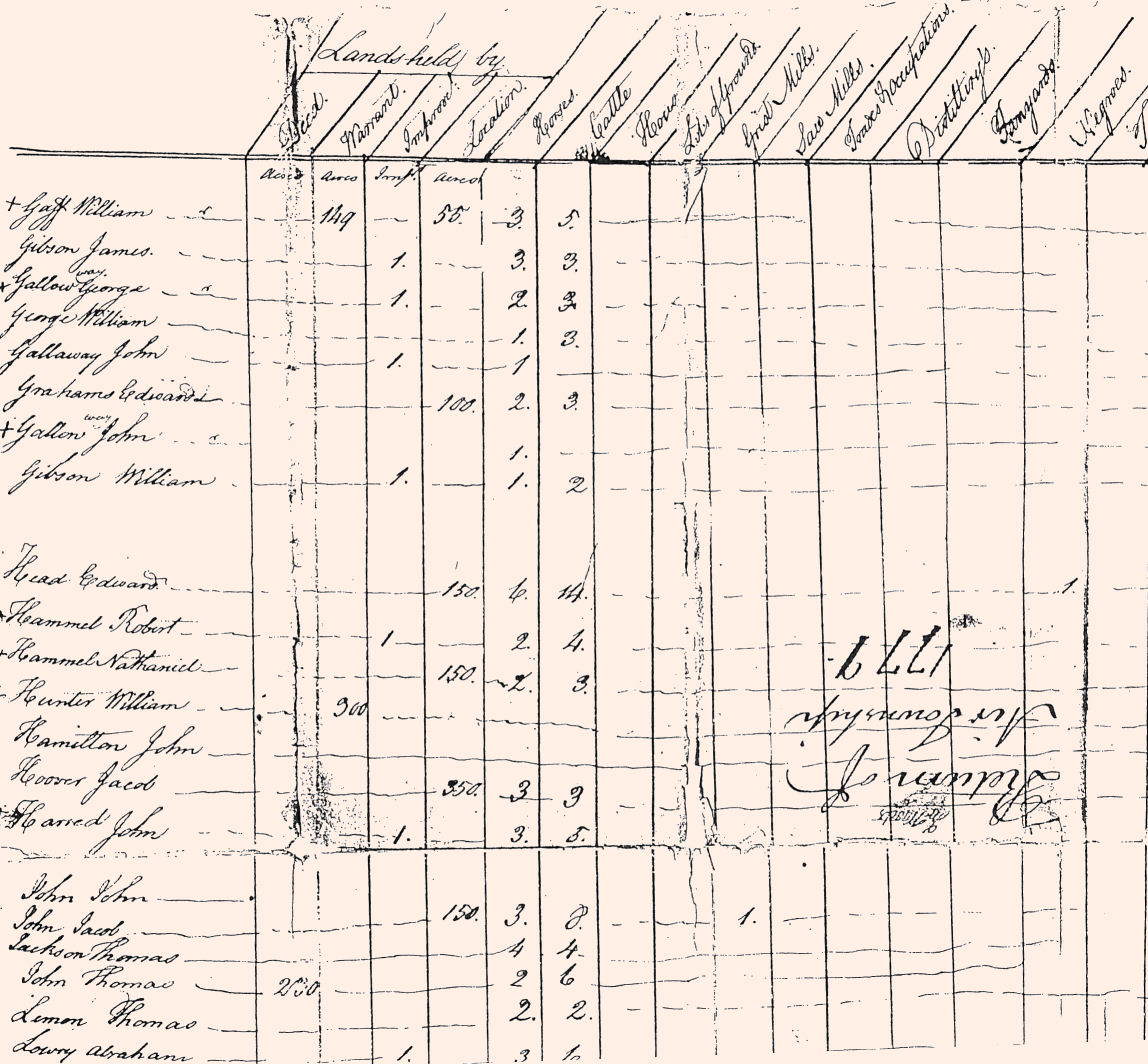 Lands held by
Deed. Warrant. Improvt. Location. Horses. Cattle Lots of Ground. Grist Mills. Saw Mills. Trades & Occupations. Distillerys. Tanyards. Negroes.
Acres Acres Impt. Acres
+ Gaff William 149 55. 3. 5.
Gibson James. 1. 3. 3.
+ Galloway George 1. 2. 3.
George William 1. 3.
Gallaway John 1. 1
Grahams Edward 100. 2. 3.
+ Galloway John 1.
Gibson William 1. 1. 2
Head Edward 150. 6. 14. 1.
+ Hammel Robert 1 2. 4.
+ Hammel Nathaniel 150. 2. 3.
Hunter William 300
Hamilton John
Hoover Jacob 350. 3 3
+ Harred John 1. 3. 5.
John John
John Jacob 150. 3. 8. 1.
Jackson Thomas 4 4.
John Thomas 200 2 6
Lemon Thomas 2. 2.
Lowry Abraham 1. 3 1
Return of
Air Township
1779.